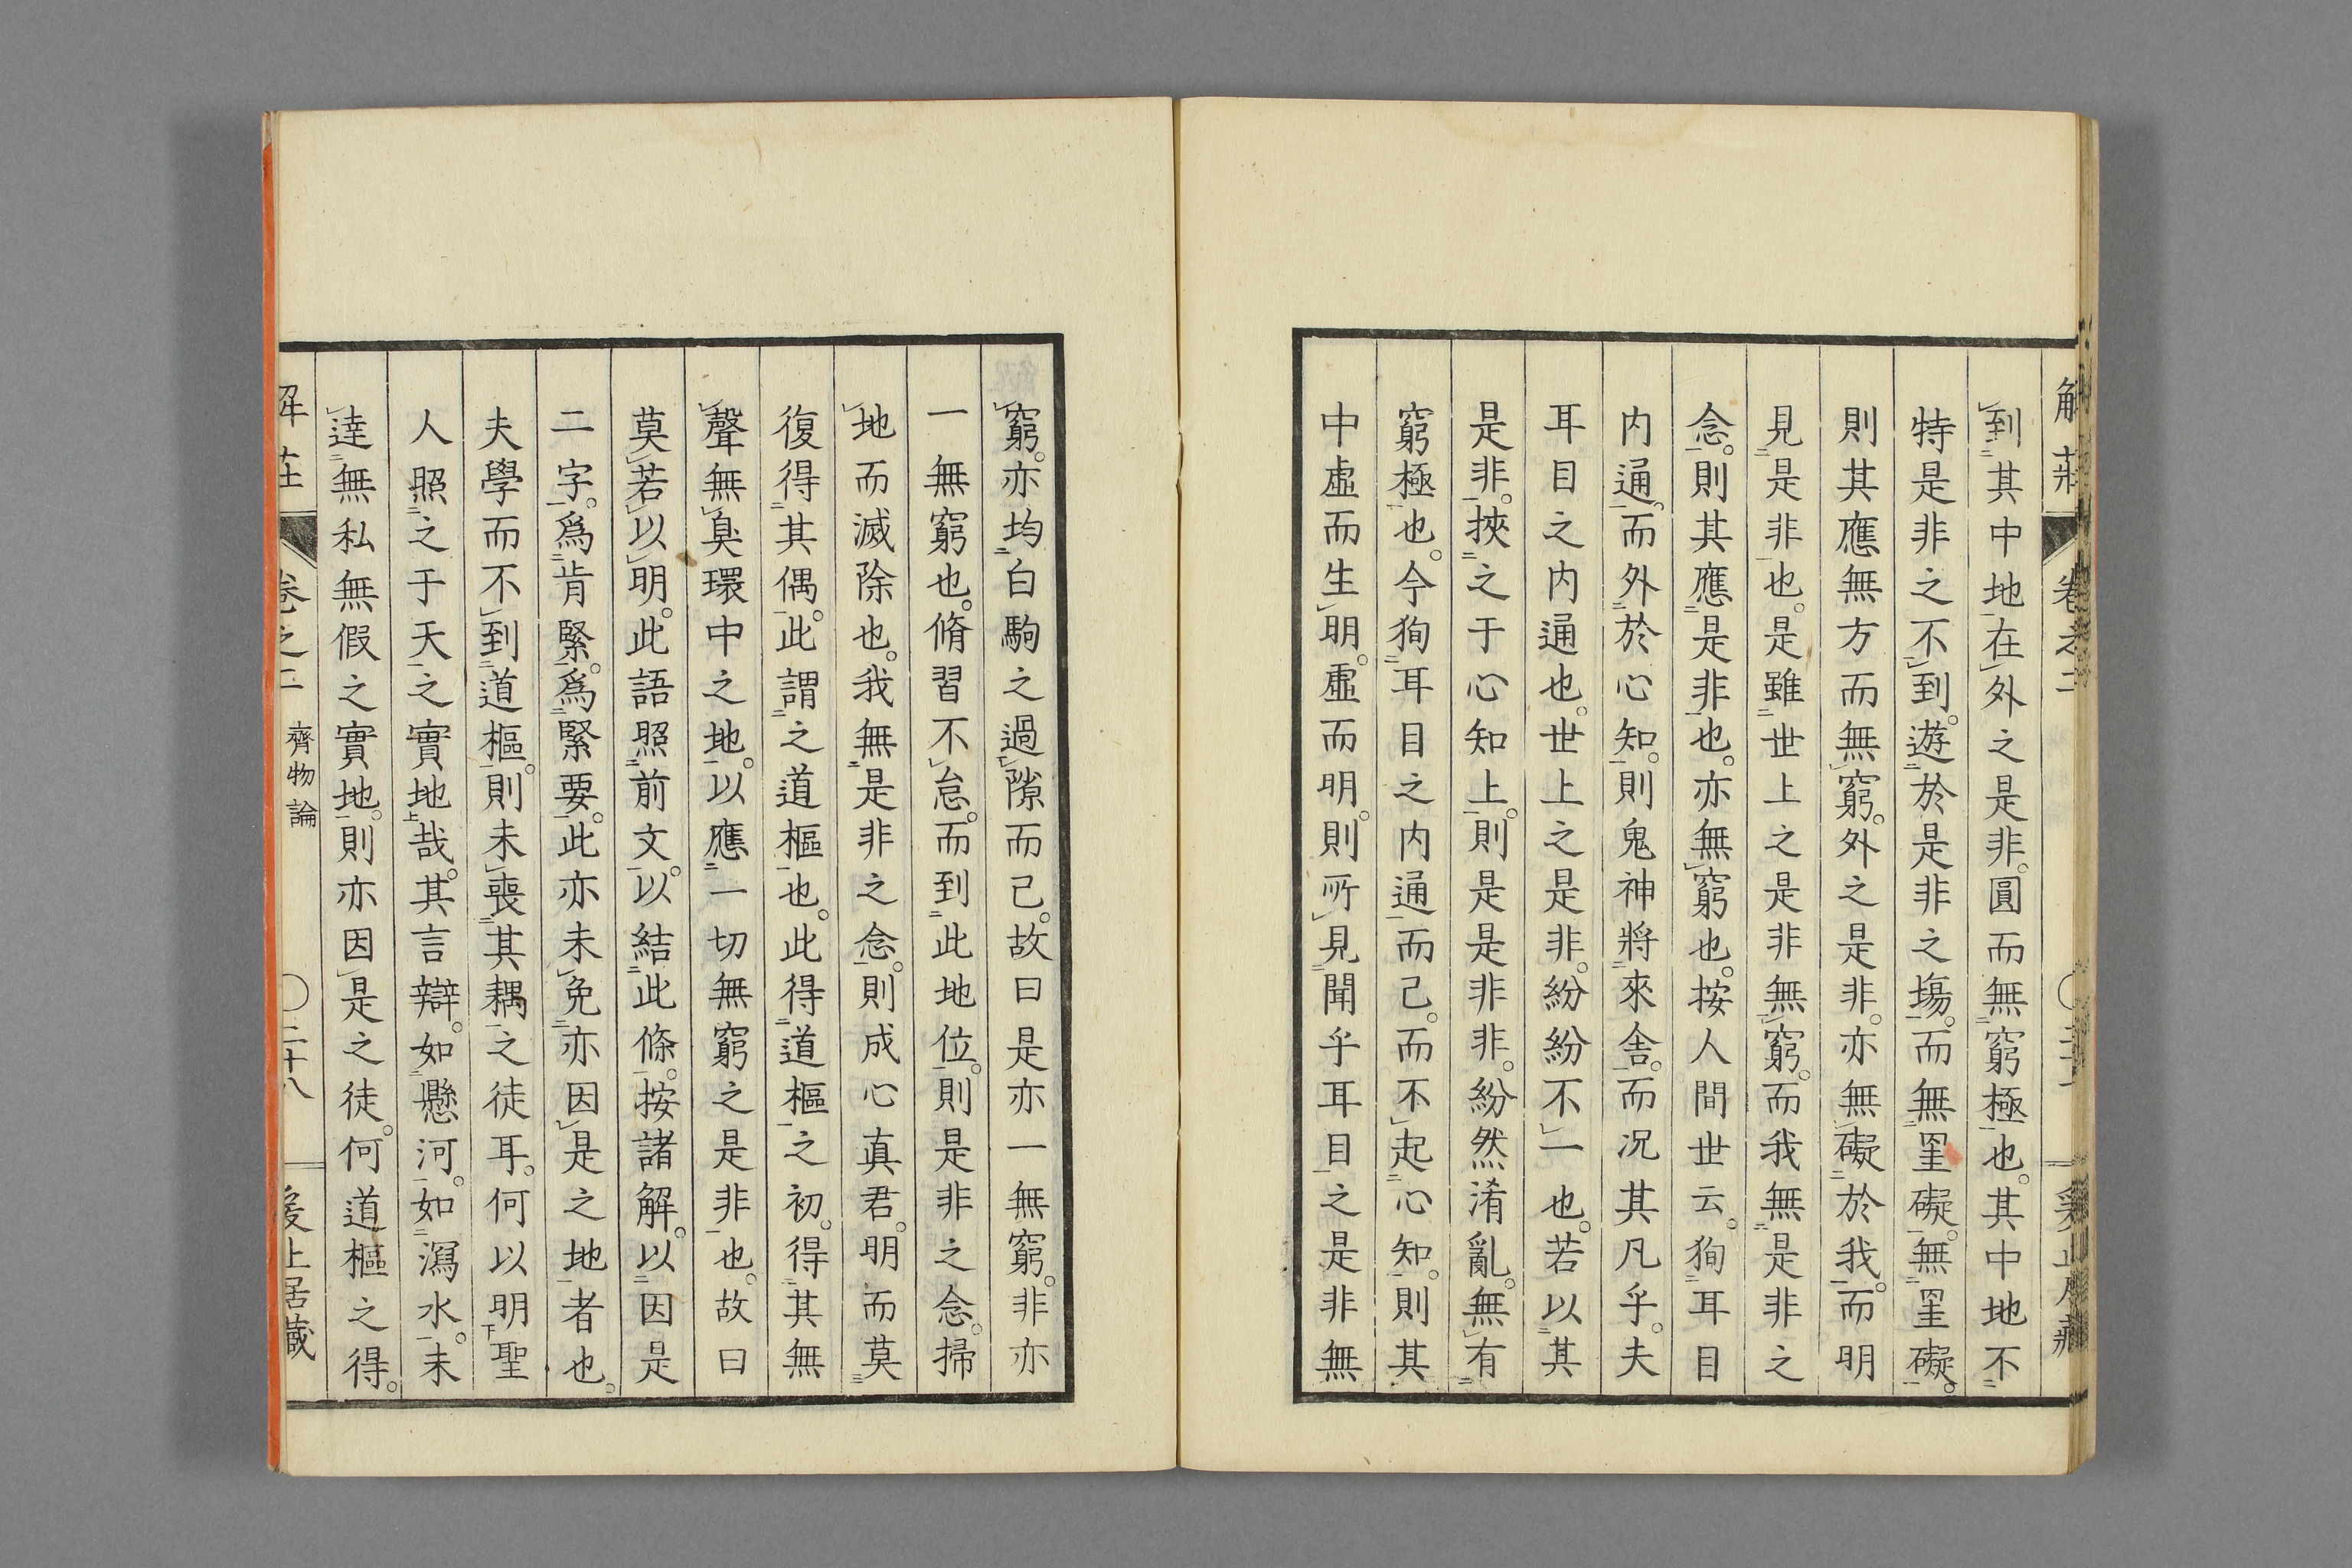 到其中地在外之是非。圓而無窮極也。其中地不
特是非之不到。遊於是非之塲。而無罣礙。無罣礙。
則其應無方而無窮。外之是非。亦無礙於我。而明
見是非也。是雖世上之是非無窮。而我無是非之
念。則其應是非也。亦無窮也。按人間世云。狥耳目
内通。而外於心知。則鬼神將來舍。而况其凡乎。夫
耳目之内通也。世上之是非。紛紛不一也。若以其
是非。挾之于心知上。則是是非非。紛然淆亂。無有
窮極也。今狥耳目之内通而己。而不起心知。則其
中虛而生明。虛而明。則所見聞乎耳目之是非無
窮。亦均白駒之過隙而己。故曰是亦一無窮。非亦
一無窮也。脩習不怠。而到此地位。則是非之念。掃
地而滅除也。我無是非之念。則成心真君。明而莫
復得其偶。此謂之道樞也。此得道樞之初。得其無
聲無臭環中之地。以應一切無窮之是非也。故曰
莫若以明。此語照前文。以結此條。按諸解。以因是
二字。爲肯緊。爲緊要。此亦未免亦因是之地者也。
夫學而不到道樞。則未喪其耦之徒耳。何以明聖
人照之于天之實地哉。其言辯。如懸河。如瀉水。未
達無私無假之實地。則亦因是之徒。何道樞之得。
解莊 卷之二 齊物論 〇二十八 止居藏